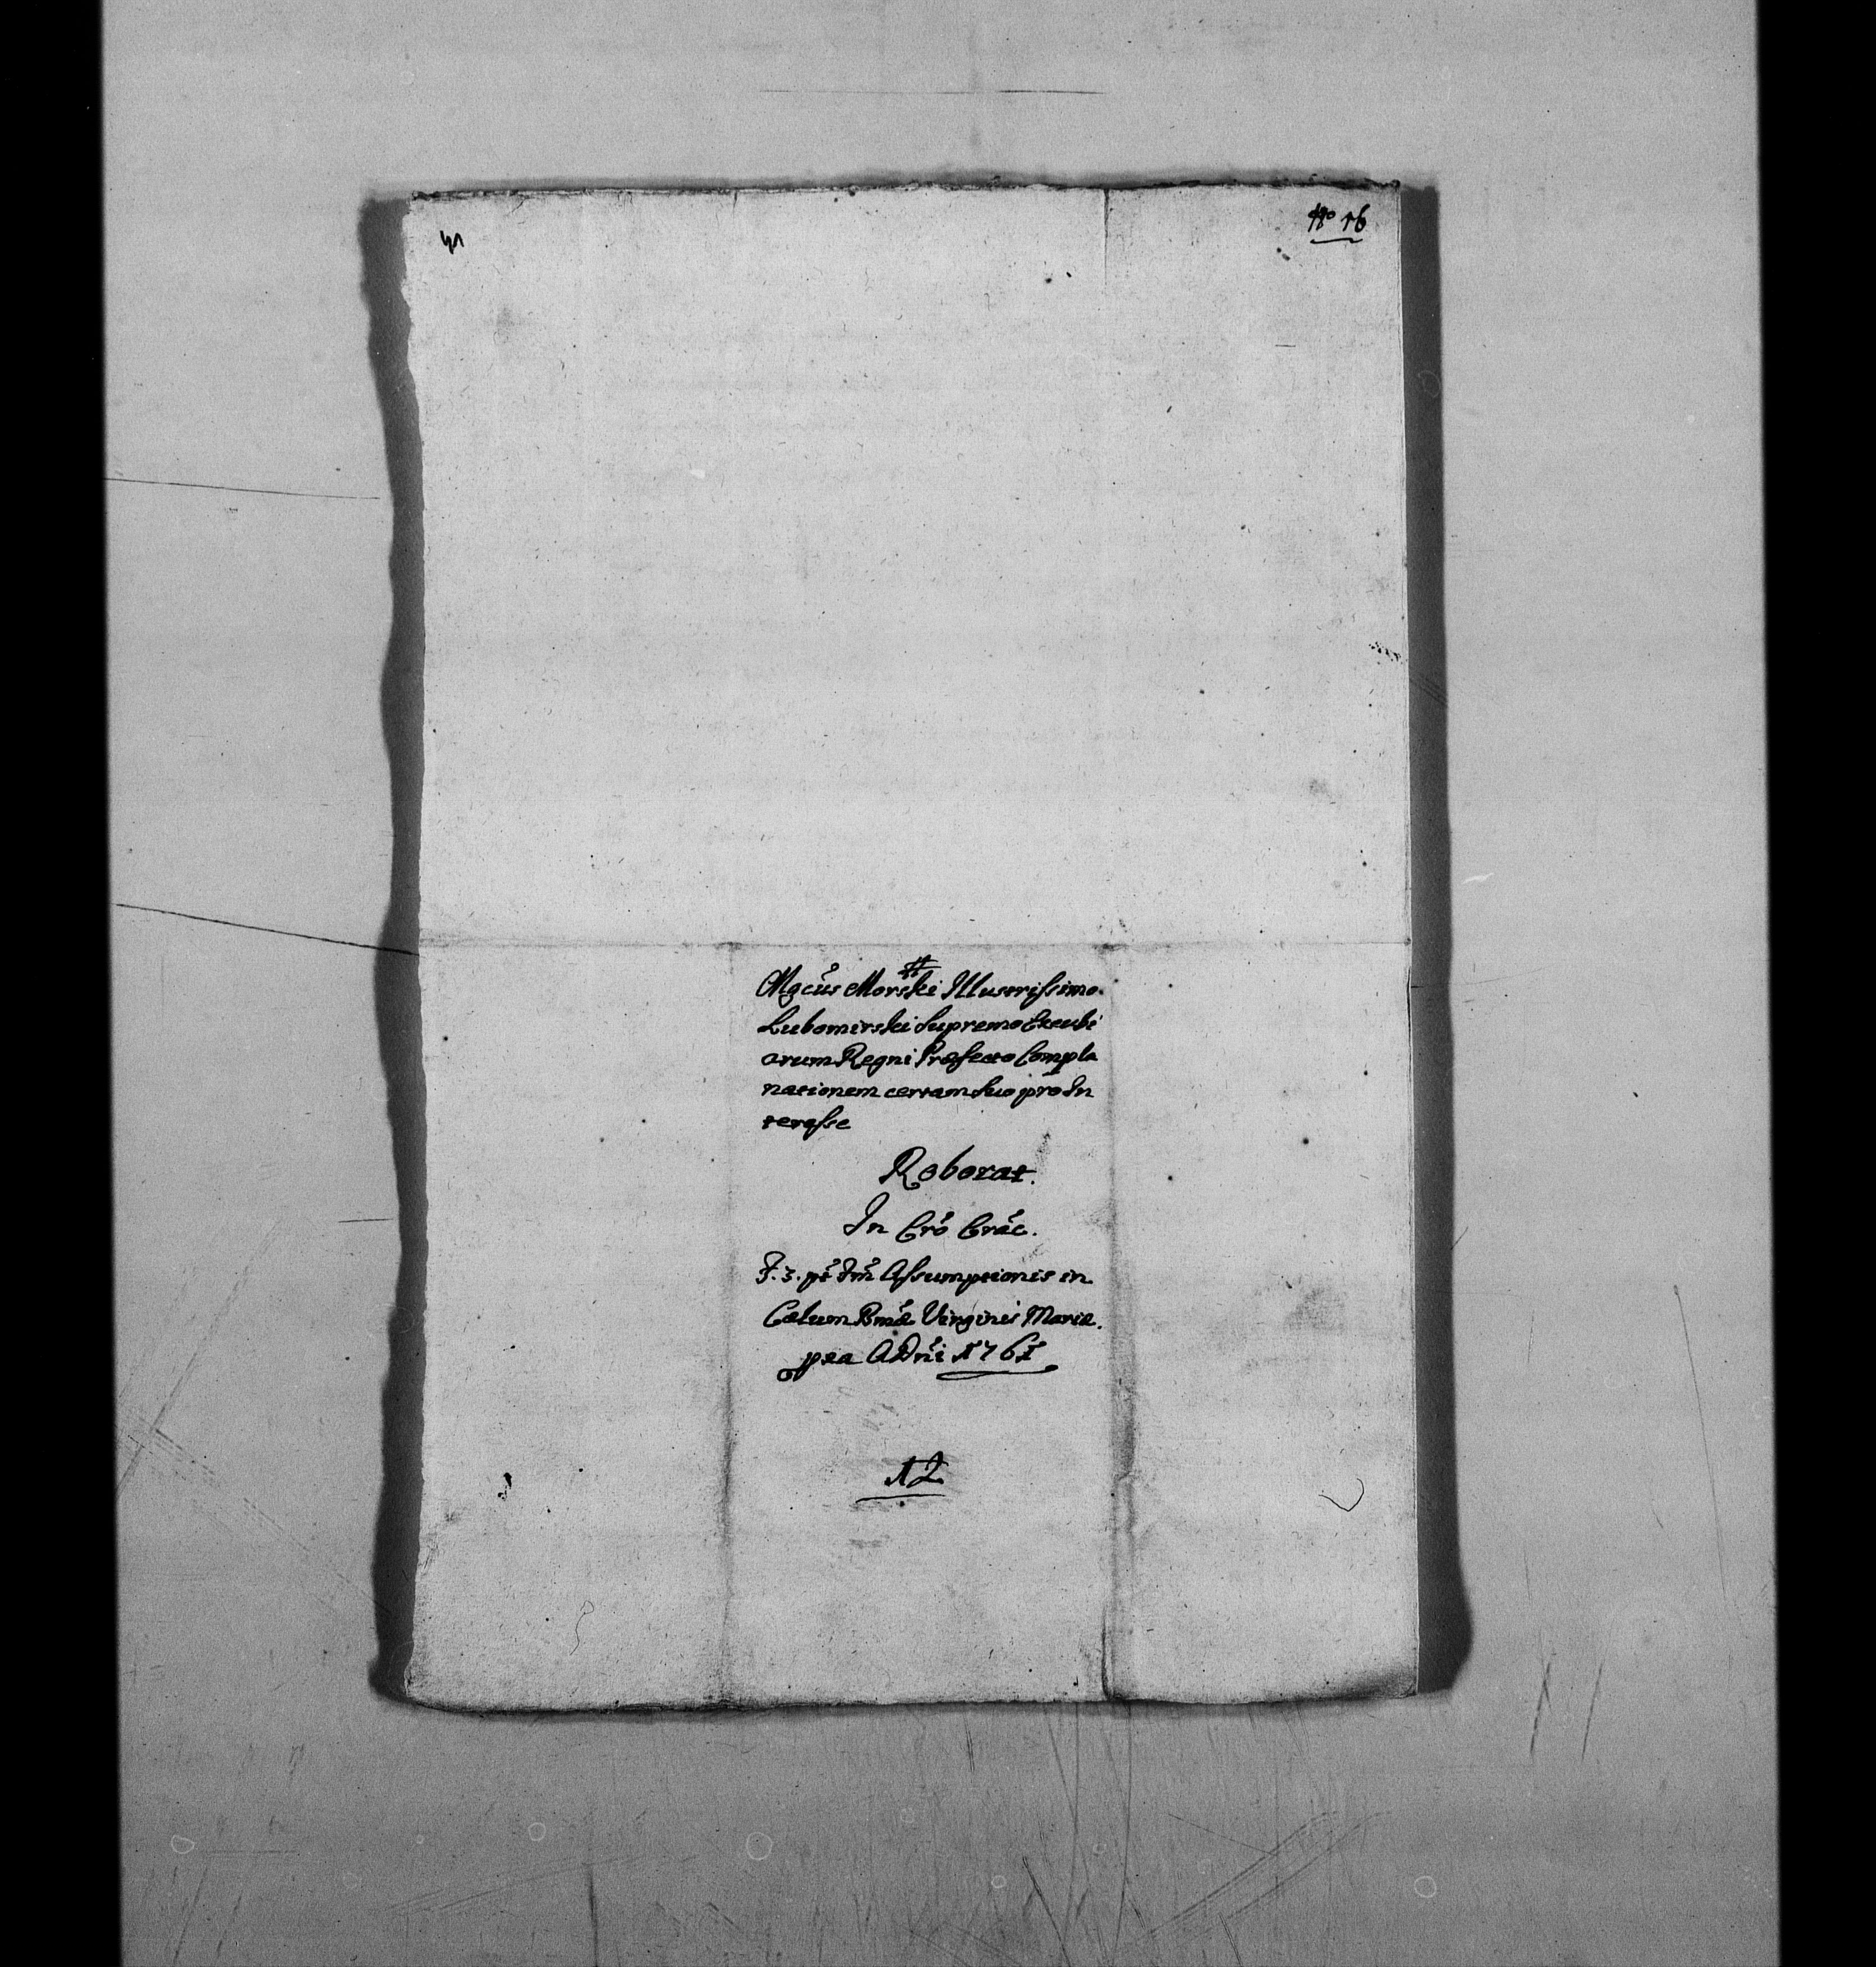 No 16
Mgcus Morski Illustrissimo
Lubomirski Supremo Excubi
arum Regni Præfecto Compla
nationem certam suo pro In
teresse
Roborat.
In Cro Crac.
F. 3. pt Fm Assumptionis in
Cælum Bmæ Virginis Mariæ.
pxa A Dni 1761
12